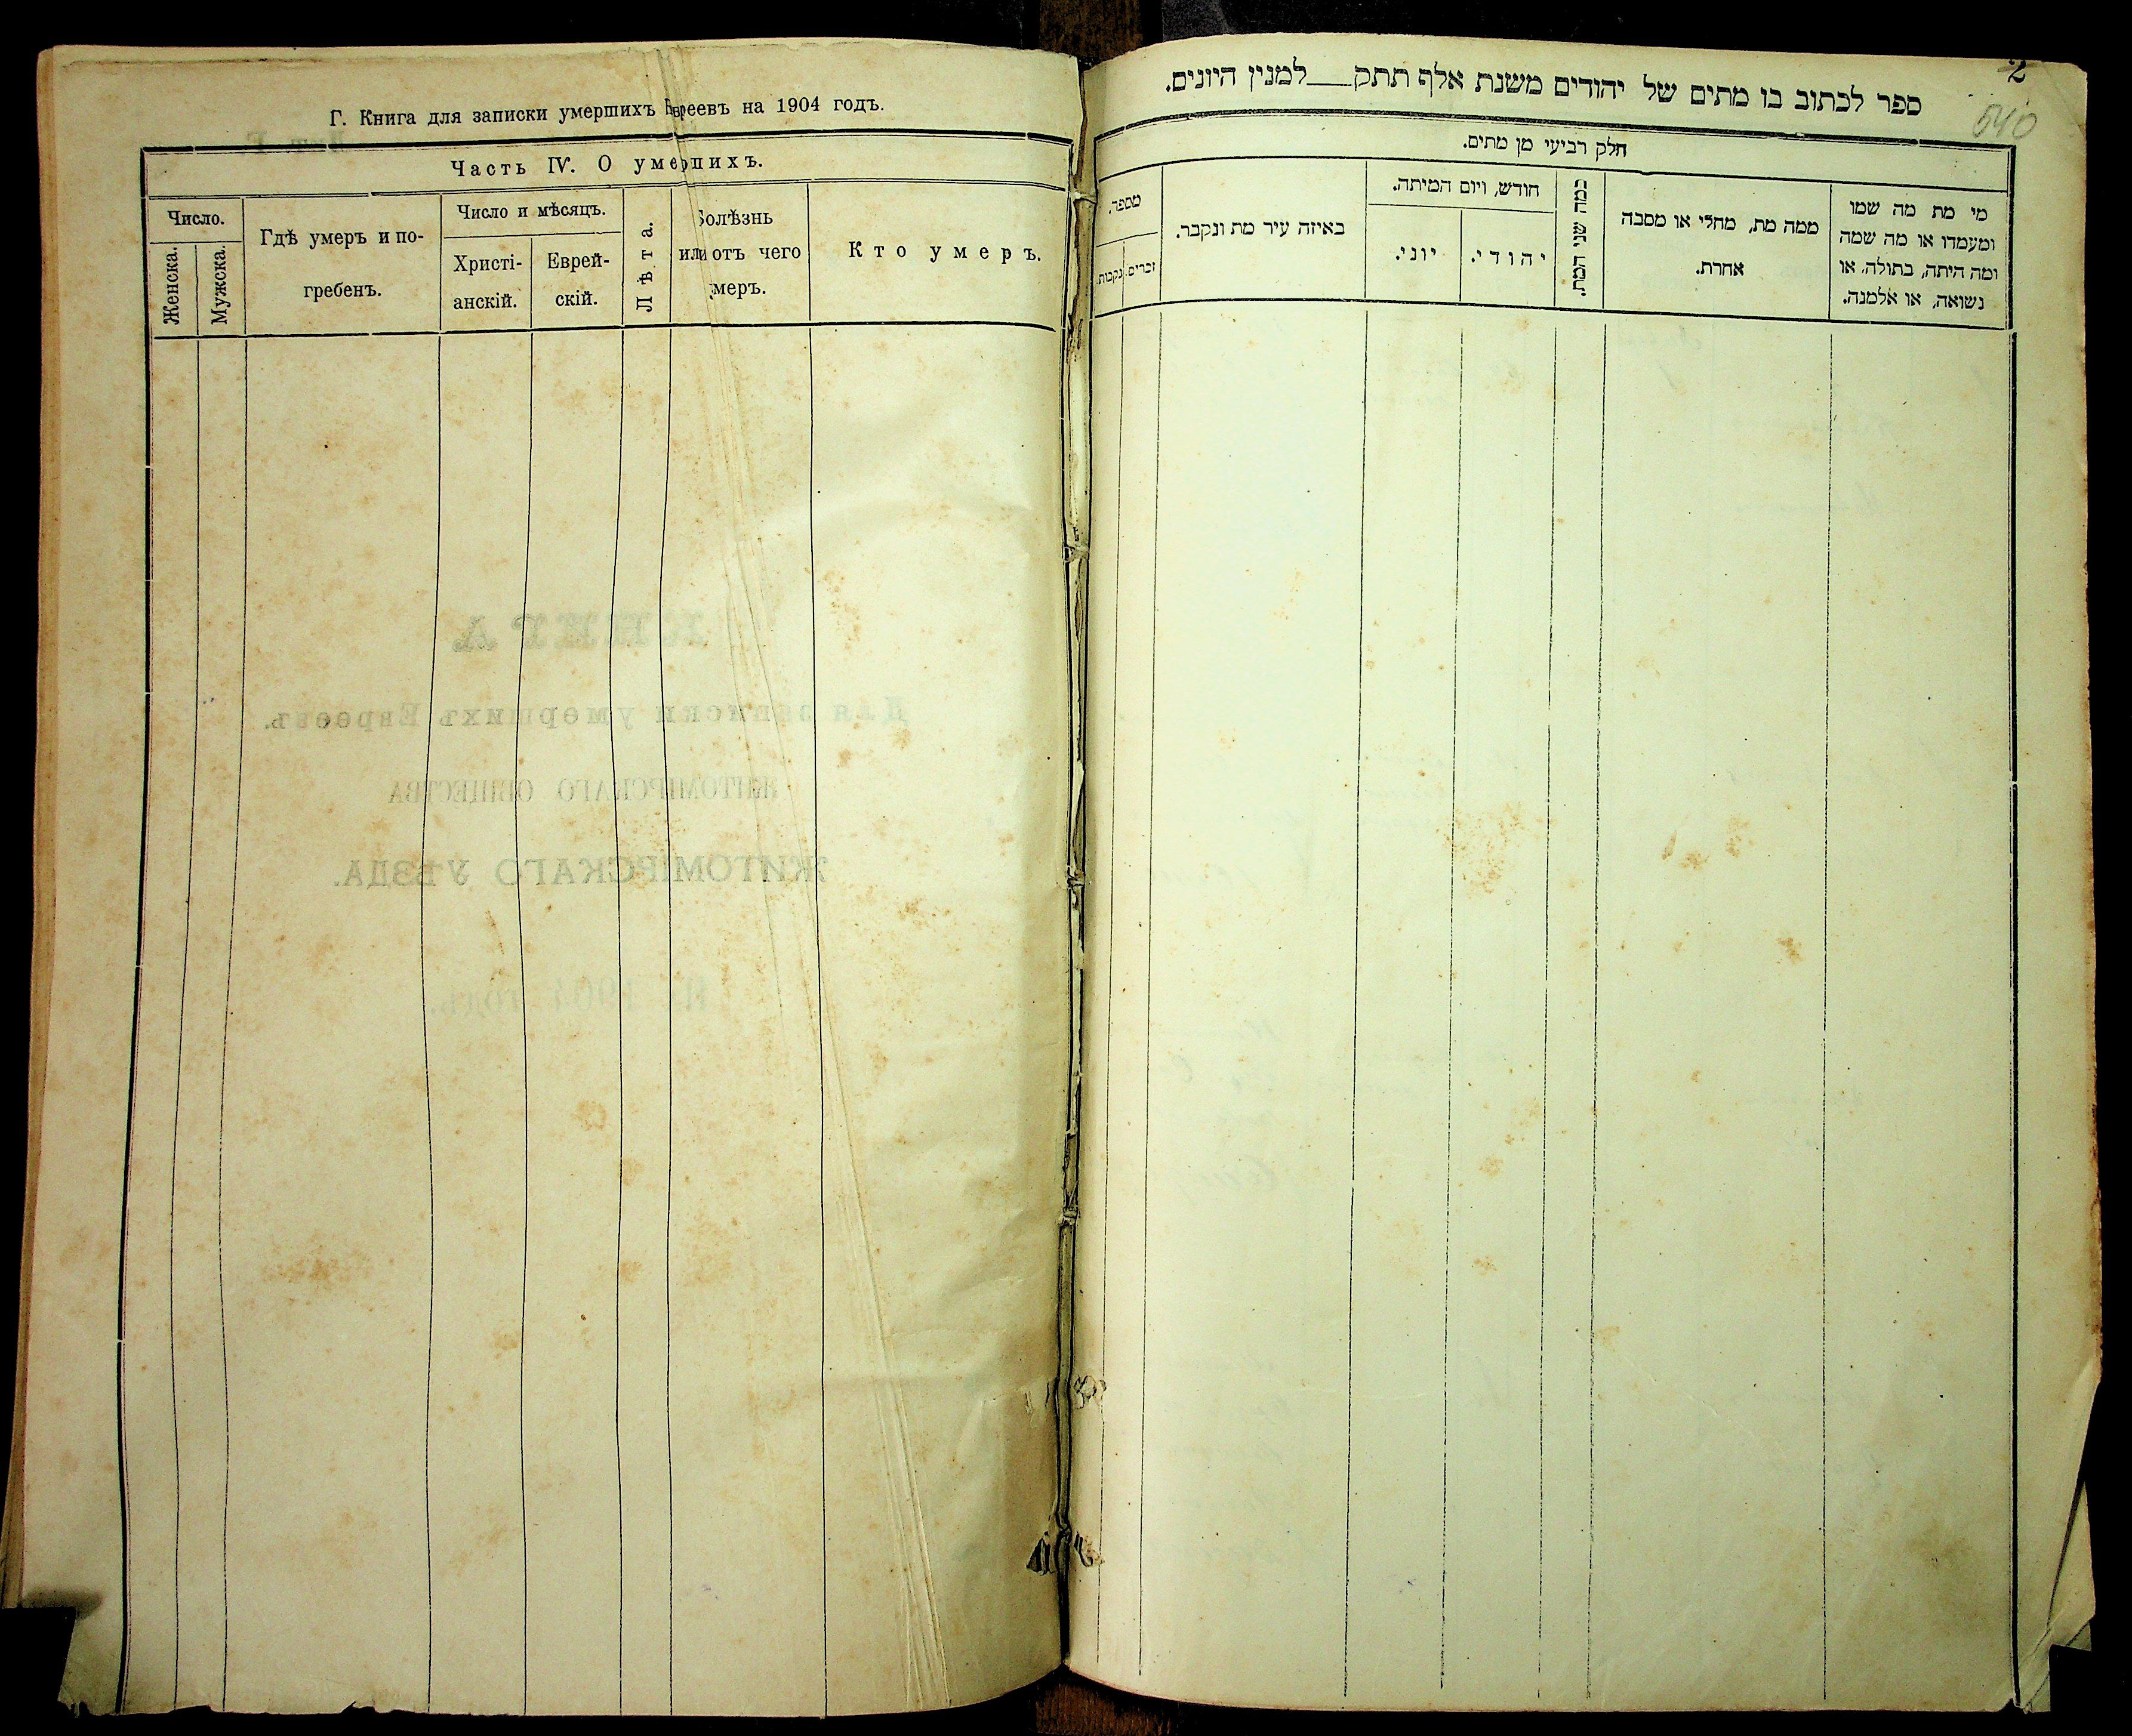 Г. Книга для записки умершихъ Евреевъ на 1904 годъ.
Часть IV. О умершихъ.
Число.
Женска.
Мужска.
Гдѣ умеръ и по-
гребенъ.
Число и мѣсяцъ.
Христі-
анскій.
Еврей-
скій.
Лѣта.
Болѣзнь
или отъ чего
умеръ.
Кто умеръ.
КНИГА
Для записки умершихъ Евреевъ.
ЖИТОМІРСКАГО ОБЩЕСТВА
ЖИТОМІРСКАГО УѢЗДА.
На 1904 годъ.
2
540
ספר לכתוב בו מתים של יהודים משנת אלף תתק___למנין היונים.
חלק רביעי מן מתים.
מי מת מה שמו
ומעמדו או מה שמה
ומה היתה, בתולה, או
נשואה, או אלמנה.
ממה מת, מחלי או מסבה
אחרת.
כמה שני המת.
חודש, ויום המיתה.
יהודי.
יוני.
באיזה עיר מת ונקבר.
מספר.
זכרים.
נקבות.